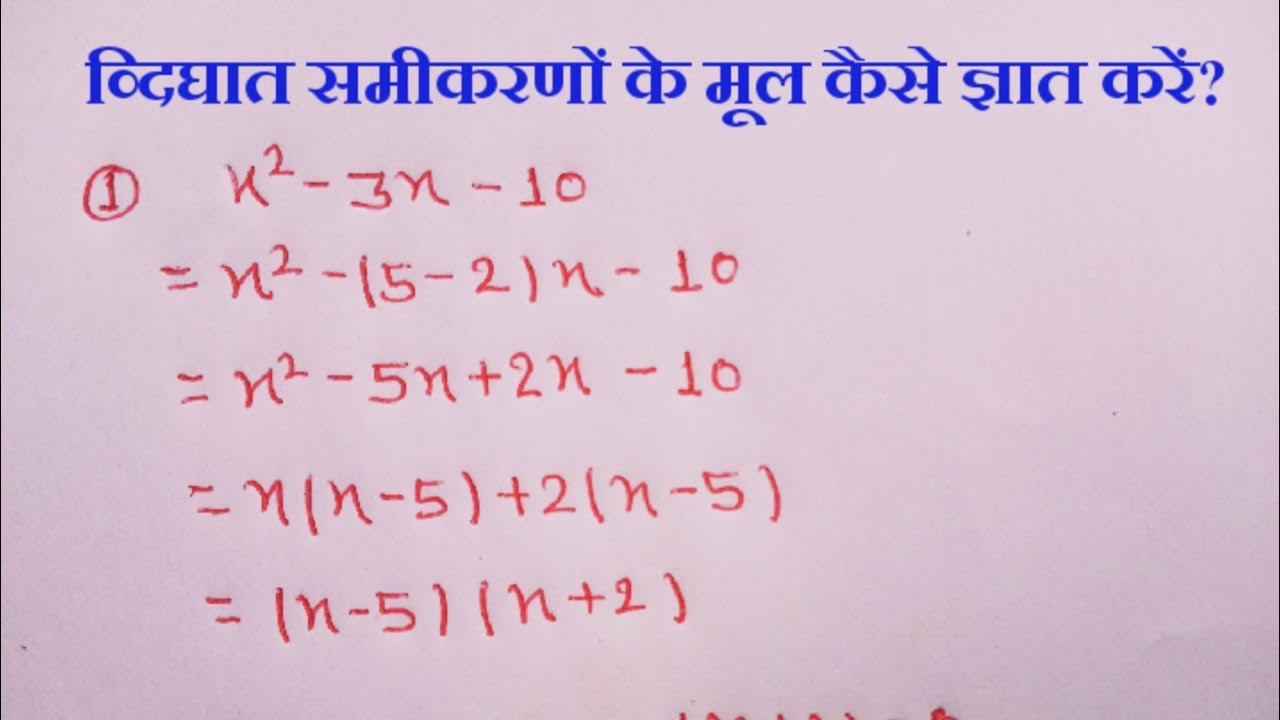 व्दिघात समीकरणों के मूल कैसे ज्ञात करें?
① x² - 3x - 10
= x² - (5 - 2) x - 10
= x² - 5x + 2x - 10
= x(x - 5) + 2(x - 5)
= (x - 5) (x + 2)